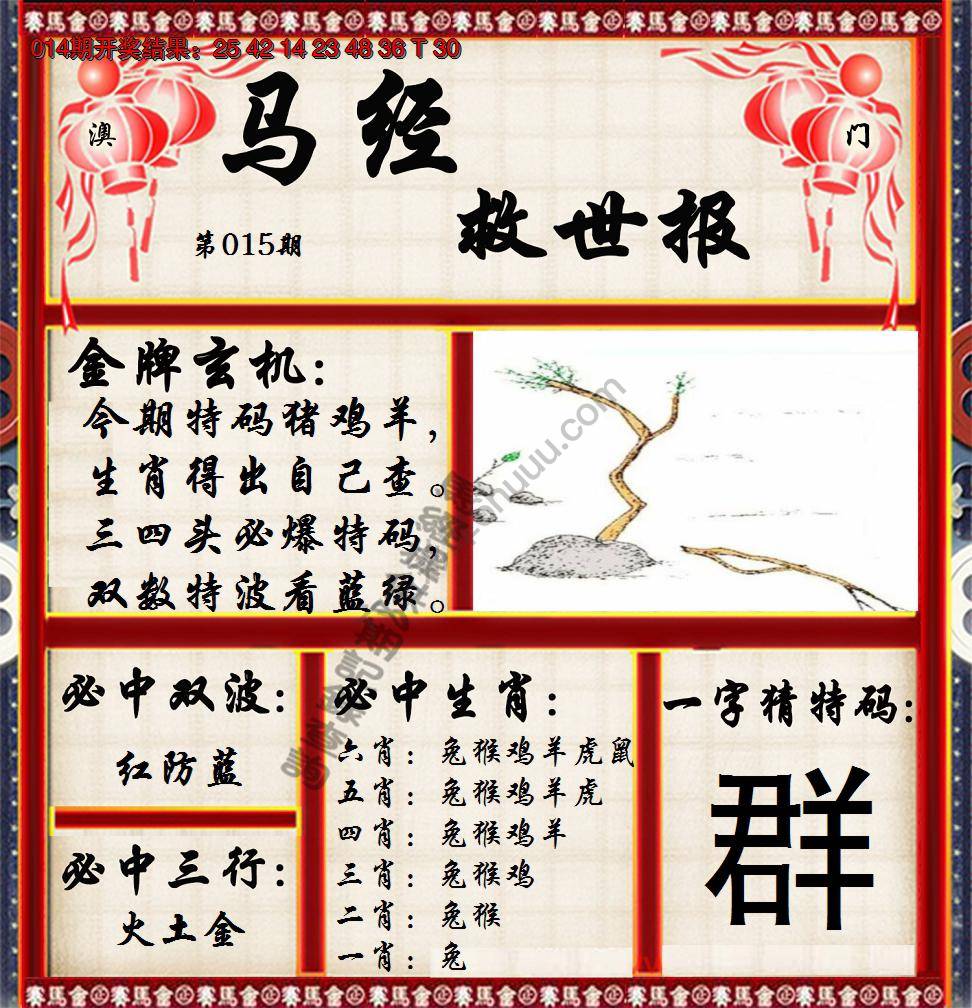 014期开奖结果：25 42 14 23 48 36 T 30
澳门
马经
救世报
第015期
金牌玄机：
今期特码猪鸡羊，
生肖得出自己查。
三四头必爆特码，
双数特波看蓝绿。
必中双波：
红防蓝
必中三行：
火土金
必中生肖：
六肖：兔猴鸡羊虎鼠
五肖：兔猴鸡羊虎
四肖：兔猴鸡羊
三肖：兔猴鸡
二肖：兔猴
一肖：兔
一字猜特码：
群